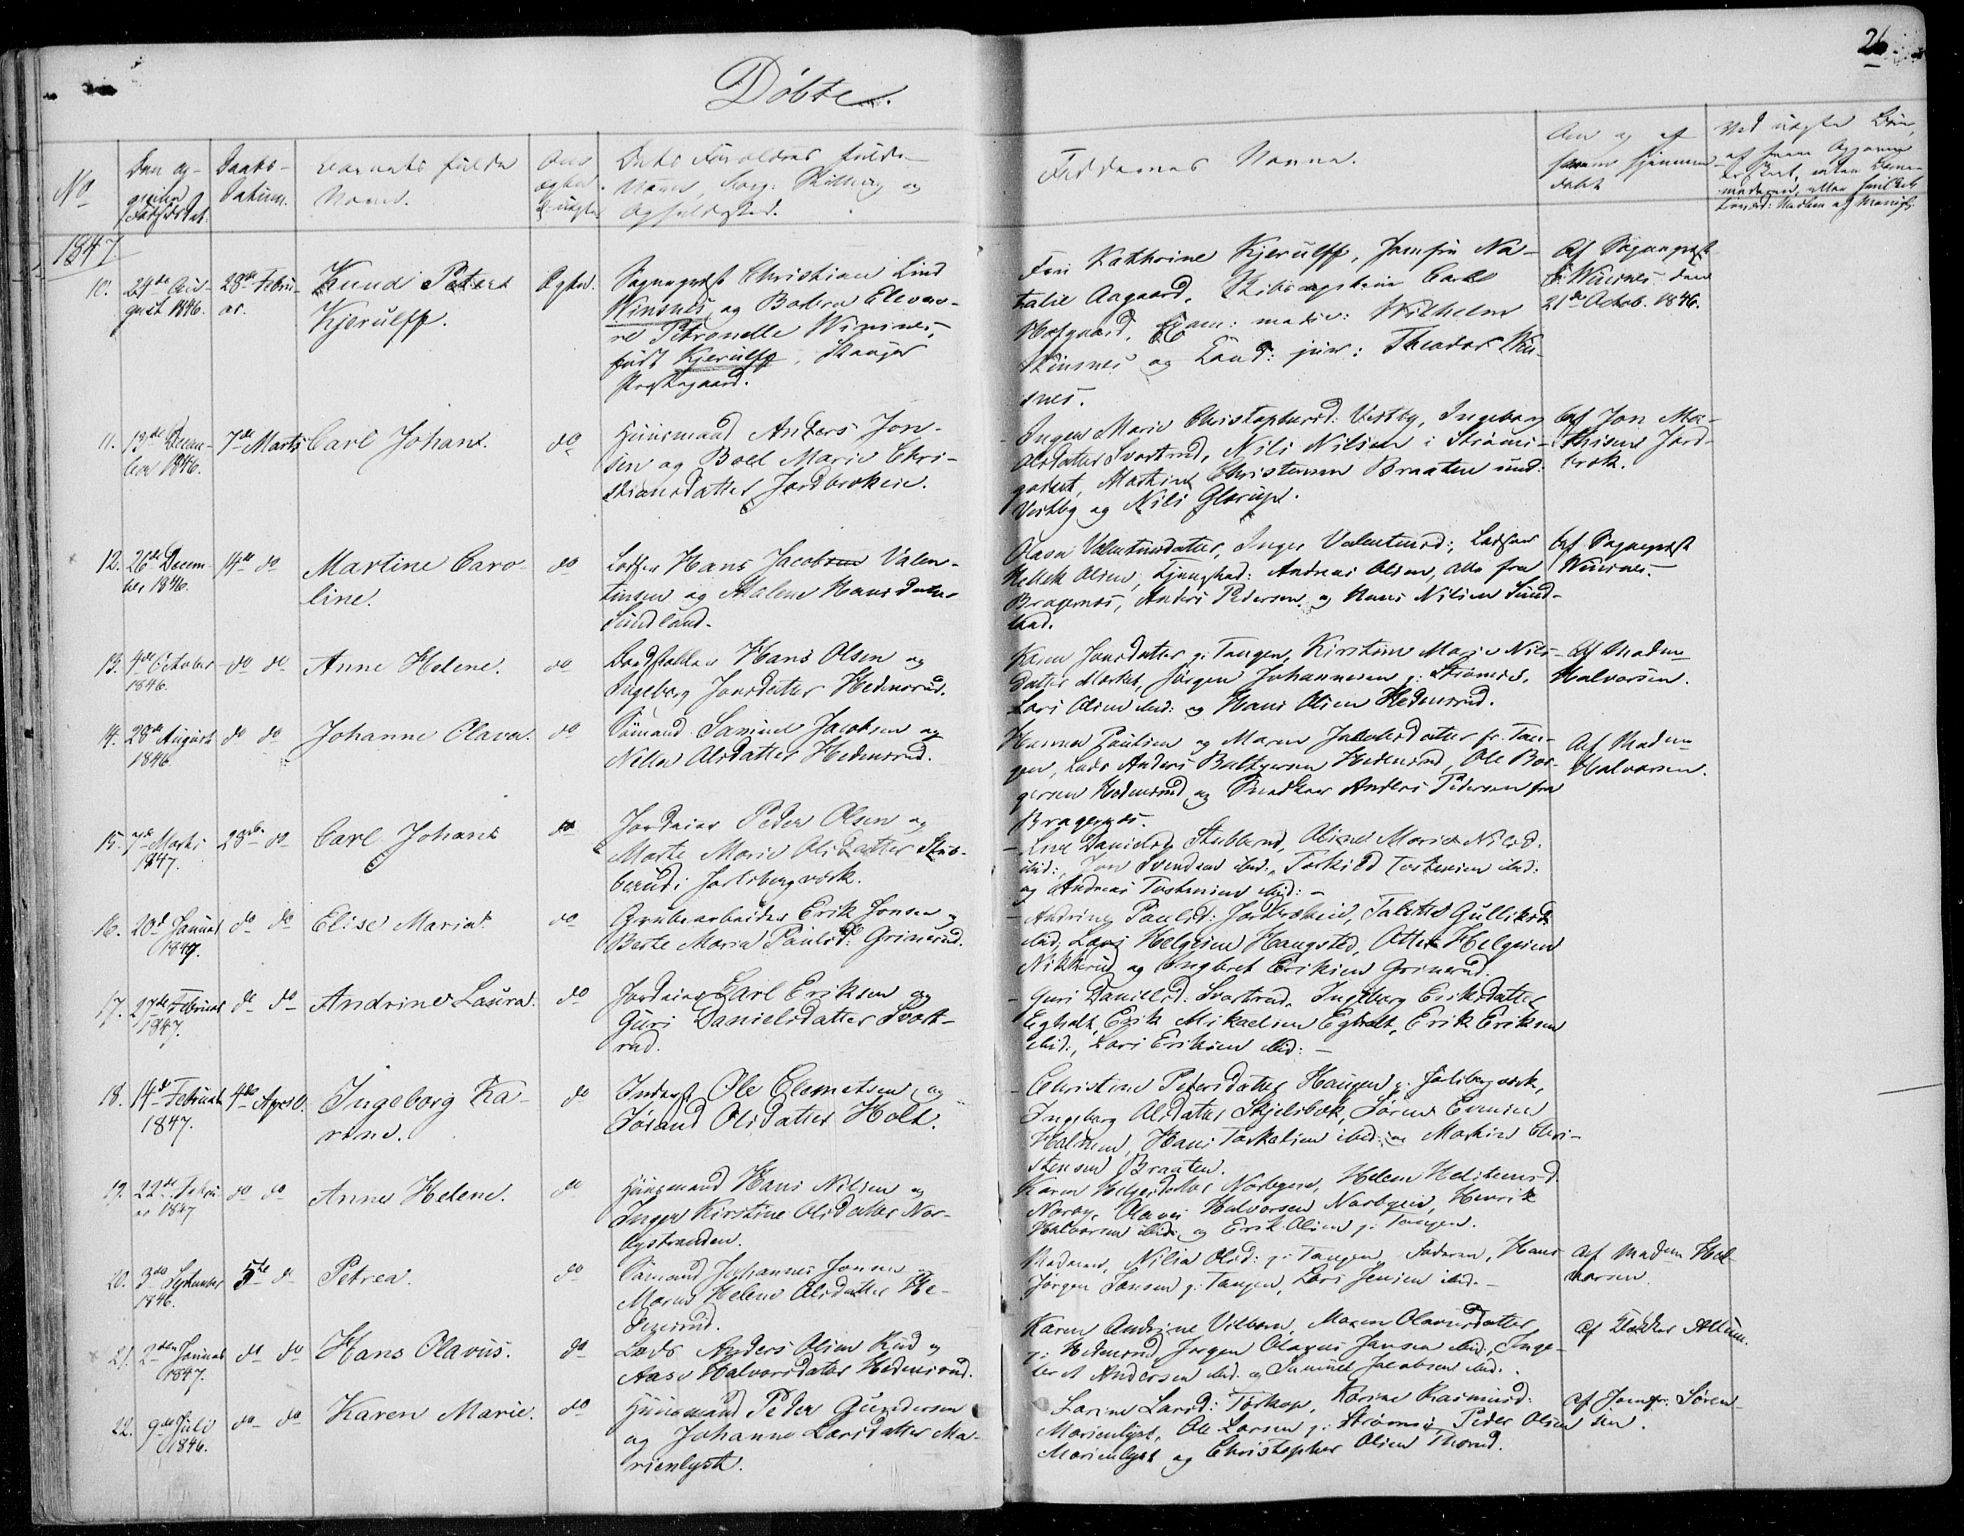 26
Døbte.
No
Den opgivne Fødselsdat:
Daabs-Datum.
Barnets fulde Navn.
Om ægte e: uægte
Dets Forældres fulde Navne, Borg: Stilling og Opholdssted.
Faddernes Navne.
Om og af hvem hjemmedøbt
1847.
10.
29de August 1846.
28de Februar.
Knud Peter Kjerulff.
Ægte.
Sognepræst Christian Lind
Winsnes, og Barbra Eleono-
re Petronelle Winsnes,
født Kjerulff, Skouger
Præstegaard.
Frü Kathrine Kjerulff, Jomfrü Na-
talie Aagaard, Skibscapitain Carl
Wilhelm
Winsnes og Cand: jur: Theodor Win-
snes.
Af Sognepræst
Winsnes den
21de Octob. 1846.
11.
13de Decem-
ber 1846.
7de Marts
Carl Johan.
do
Huusmand Anders Jon-
sen og Boel Marie Chri-
stiansdatter Jordbrekeie.
Inger Marie Christophersd: Vestby, Ingeborg
Olsdatter Svartrud, Nils Nilsen i Strøms-
godset, Martin Christensen Braaten und:
Vestby og Nils Glarup.
Af Jon Ma-
thisen Jord-
brek.
12.
26de Decem-
ber 1846.
14de do
Martine Caro-
line.
do
Lodsen Hans Jacobsen Valen-
tinsen og Malene Hansdatter
Sundland.
Olava Valentinsdatter, Inger Valentinsd:, Lodsen
Kittek Olsen, Andreas Olsen, alle fra
Bragernæs, Anders Pedersen og Hans Nilsen Sund-
land.
Af Sognepræst
Winsnes.
13.
4de October
1846.
do do
Anne Helene.
do
Hans Olsen og
Ingeborg Jonsdatter Hedensrud.
Karen Jonsdatter p: Tangen, Kirstine Marie Nils-
datter Mørket, Jørgen Johannesen p: Strømsø,
Lars Olsen ibid: og Hans Olsen Hedensrud.
Af Madm
Halvorsen.
14.
28de August
1846
do do
Johanne Olava.
do
Sømand Samuel Jacobsen og
Nella Olsdatter Hedensrud.
Hanna Paulsen og Maren Jacobsdatter fr. Tan-
gen, Lods Anders Baltzersen Hedensrud, Ole Bor-
gersen Hedensrud og Snedker Anders Pedersen fra
Bragernæs.
Af Madm
Halvorsen.
15.
7de Marts
1847.
28de do
Carl Johan
do
Jordeier Peder Olsen og
Marte Marie Olsdatter Stub-
berud i Jarlsbergværk.
Ane Danielsd: Stubberud, Oline Marie Nilsd.
ibid:, Jon Svendsen ibid:, Torkild Torstensen ibid:
og Andreas Torstensen ibid: –
16.
20d Januar
1847.
do do
Elise Maria.
do
Grubearbeider Erik Jonsen og
Berte Maria Paulsd: Grinerud.
Andrine Paulsd: Jordbrekeie, Talette Gulliksd:
ibid, Lars Helgesen Haugsted, Otter Helgesen
Nikkerud og Engbret Eriksen Grinerud.
17.
27de Februar
1847.
do do
Andrine Laura.
do
Jordeier Carl Eriksen og
Guri Danielsdatter Svart-
rud.
Guri Danielsd: Svartrud, Ingeborg Eriksdatter
Egholt, Erik Mikaelsen Egholt, Erik Eriksen
ibid:, Lars Eriksen ibid: –
18.
14de Februar
1847.
4de April.
Ingeborg Ka-
rine.
do
Inderst Ole Clemetsen og
Torand Olsdatter Holt.
Christine Pedersdatter Haugen p: Jarlsbergværk,
Ingeborg Olsdatter Skjelsbek, Søren Evensen
Halmen, Hans Torkelsen ibid: og Martin Chri-
stensen Braaten.
19.
22de Febru-
ar 1847
do do
Anne Helene.
do
Huusmand Hans Nilsen og
Inger Kirstine Olsdatter Nor-
bystranden.
Karen Helgesdatter Norbyeie, Helene
Norby, Olaves Halvorsen Norbyeie, Henrik
Halvorsen ibid: og Erik Olsen p: Tangen.
20.
3de September
1846.
5te do
Petrea.
do
Sømand Johannes Jonsen
Maren Helene Olsdatter He-
densrud.
Madmm. Nilia Olsd: p: Tangen, Faderen, Hans
Jørgen Jonsen p: Tangen, Lars Jensen ibid. –
Af Madm Hal-
vorsen.
21.
2den Januar
1847.
do do
Hans Olavus.
do
Lods Anders Olsen Rud og
Aase Halvorsdatter Hedensrud.
Karen Andrine Maren Olavesdatter
p: Hedensrud, Jørgen Olaves Jansen ibid, Inge-
bret Andersen ibid. og Samuel Jacobsen ibid.
Af Klokker
22.
9de Juli
1846.
do do
Karen Marie.
do
Huusmand Peder Gundersen
og Johanne Larsdatter Ma-
rienlyst.
Larine Larsd: Torkop, Karine Rasmusd:
Marienlyst, Ole Larsen p: Strømsø, Peder Olsen
Marienlyst og Christopher Olsen Thorud.
Af Jomfr: Søren-
sen.